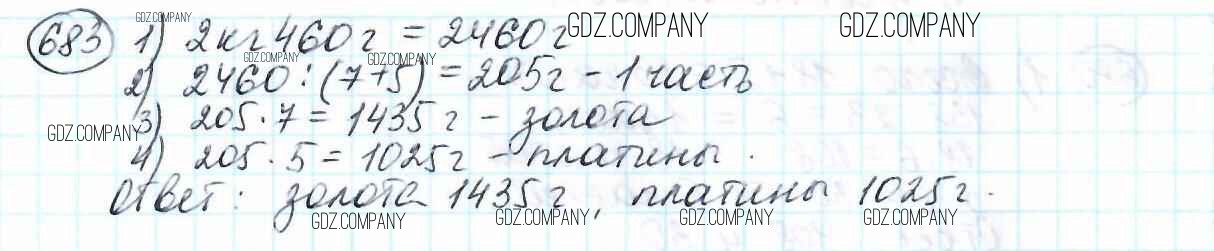 683 1) 2кг 460г = 2460г
2) 2460 : (7+5) = 205г - 1 часть
3) 205 · 7 = 1435г - золота
4) 205 · 5 = 1025г - платины.
Ответ: золота 1435г, платины 1025г.
GDZ.COMPANY
GDZ.COMPANY
GDZ.COMPANY
GDZ.COMPANY
GDZ.COMPANY
GDZ.COMPANY
GDZ.COMPANY
GDZ.COMPANY
GDZ.COMPANY
GDZ.COMPANY